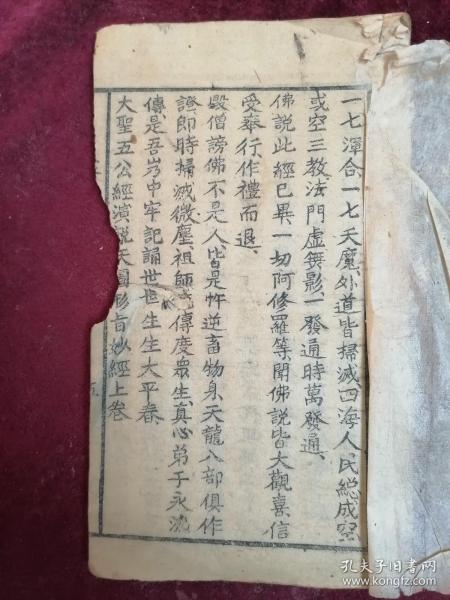 一七渾合、一七天魔外道皆掃滅四海人民總成空
或空三教法門虛無影、一發通時萬發通、
佛說此經已異一切阿修羅等聞佛說皆大觀喜信
受奉行、作禮而退、
毀僧謗佛不是人、皆是忤逆畜物身、天龍八部俱作
證即時掃滅微塵、祖師傳度眾生、真心弟子永流
傳、是吾岁中牢記誦世世生生太平春、
大聖五公經演說天圖形旨妙經上卷
孔夫子旧书网